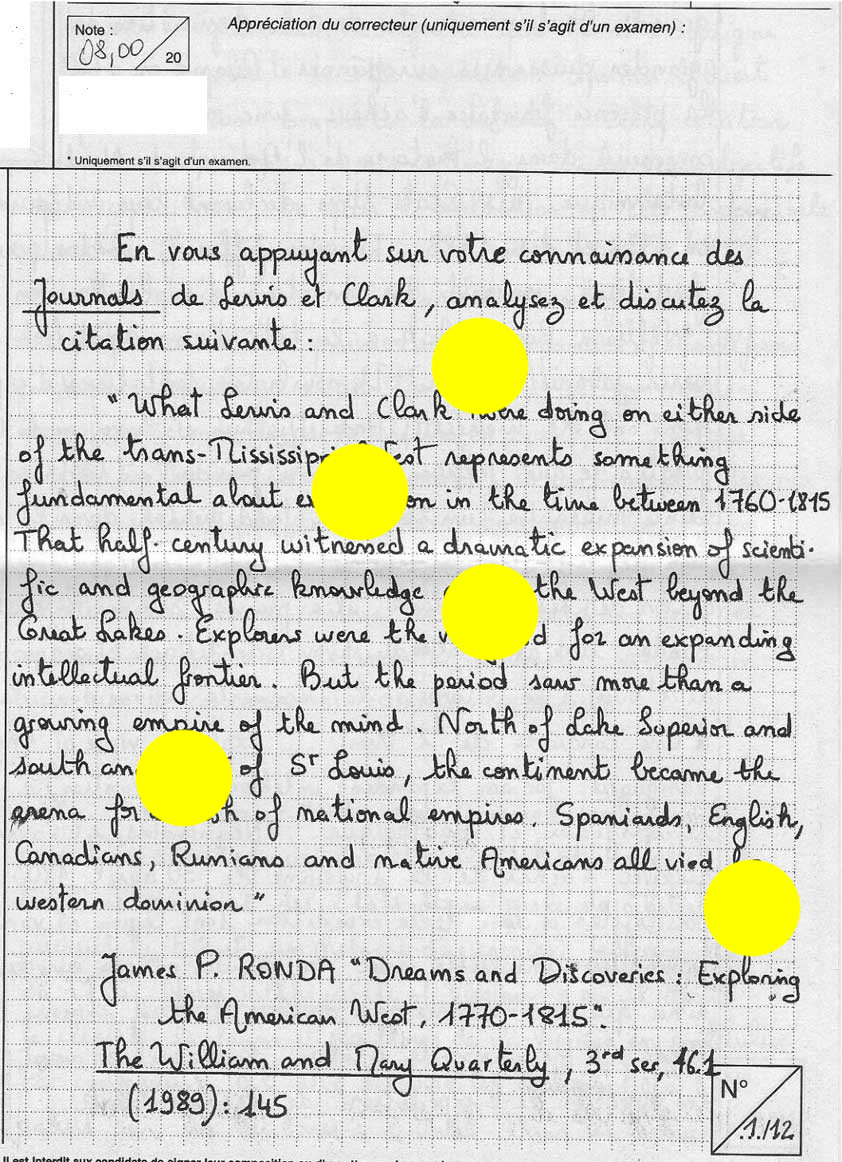 Note :
08,00
20
Appréciation du correcteur (uniquement s'il s'agit d'un examen) :
* Uniquement s'il s'agit d'un examen.
En vous appuyant sur votre connaissance des
Journals de Lewis et Clark, analysez et discutez la
citation suivante :
"What Lewis and Clark were doing on either side
of the trans-Mississippi West represents something
fundamental about in the time between 1760-1815
That half-century witnessed a dramatic expansion of scienti-
fic and geographic knowledge the West beyond the
Great Lakes. Explorers were the for an expanding
intellectual frontier. But the period saw more than a
growing empire of the mind. North of Lake Superior and
south of St Louis, the continent became the
arena of national empires. Spaniards, English,
Canadians, Russians and native Americans all vied
western dominion"
James P. RONDA "Dreams and Discoveries : Exploring
the American West, 1770-1815".
The William and Mary Quarterly, 3rd ser, 46.1
(1989) : 145
N°
1/12